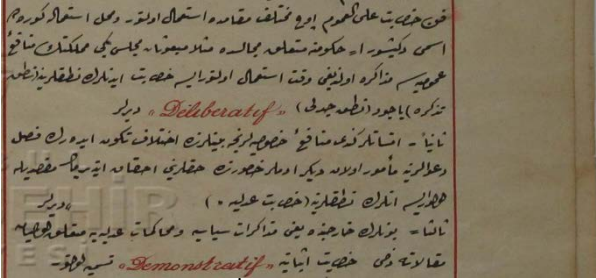 فن خطابت على العموم اوچ مختلف مقامده استعمال اولنور ومحل استعمالى كوره
اسمى دكيشور ١= حكومته متعلق مجالسده مثلا مبعوثان مجلسى كبى مملكتك منافع
عموميه سى مذاكره اولنديغى وقت استعمال اولنورايسه خطابت ايدنلرك نطقلرينه (نطق
تذكره) ياخود (نطق جدلى) «Déliberatif» ديرلر
ثانيا = انسانلرك منافع خصوصيه لرنجه بينلرنده اختلاف تكون ايده رك فصل
دعوالرينه مأمور اولان ديكر آدملر حضورنده حقلرينى احقاق ايتديرمك مقصديله
ايسه انلرك نطقلرينه (خطابت عدليه) ديرلر
ثالثا = بونلرك خارجنده يعنى مذاكرات سياسيه ومحاكمات عدليه يه متعلق
مقالاته دخى خطابت اثباتيه «Demonstratif» تسميه اولنور